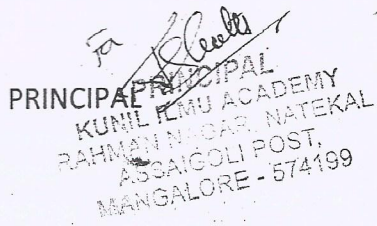 PRINCIPAL
PRINCIPAL
KUNIL ILMU ACADEMY
RAHMAN NAGAR, NATEKAL
ASSAIGOLI POST,
MANGALORE - 574199